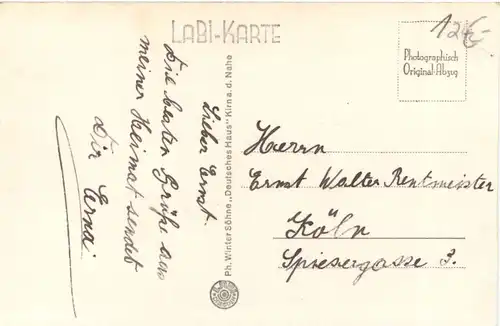 LABI-KARTE
12€,-
Photographisch
Original-Abzug
Lieber Ernst.
Die besten Grüße aus
meiner Heimat sendet
Dir Erna.
Ph. Winter Söhne „Deutsches Haus“ Kirn a. d. Nahe
Herrn
Ernst Walter Rentmeister
Köln
Spiesergasse 3.